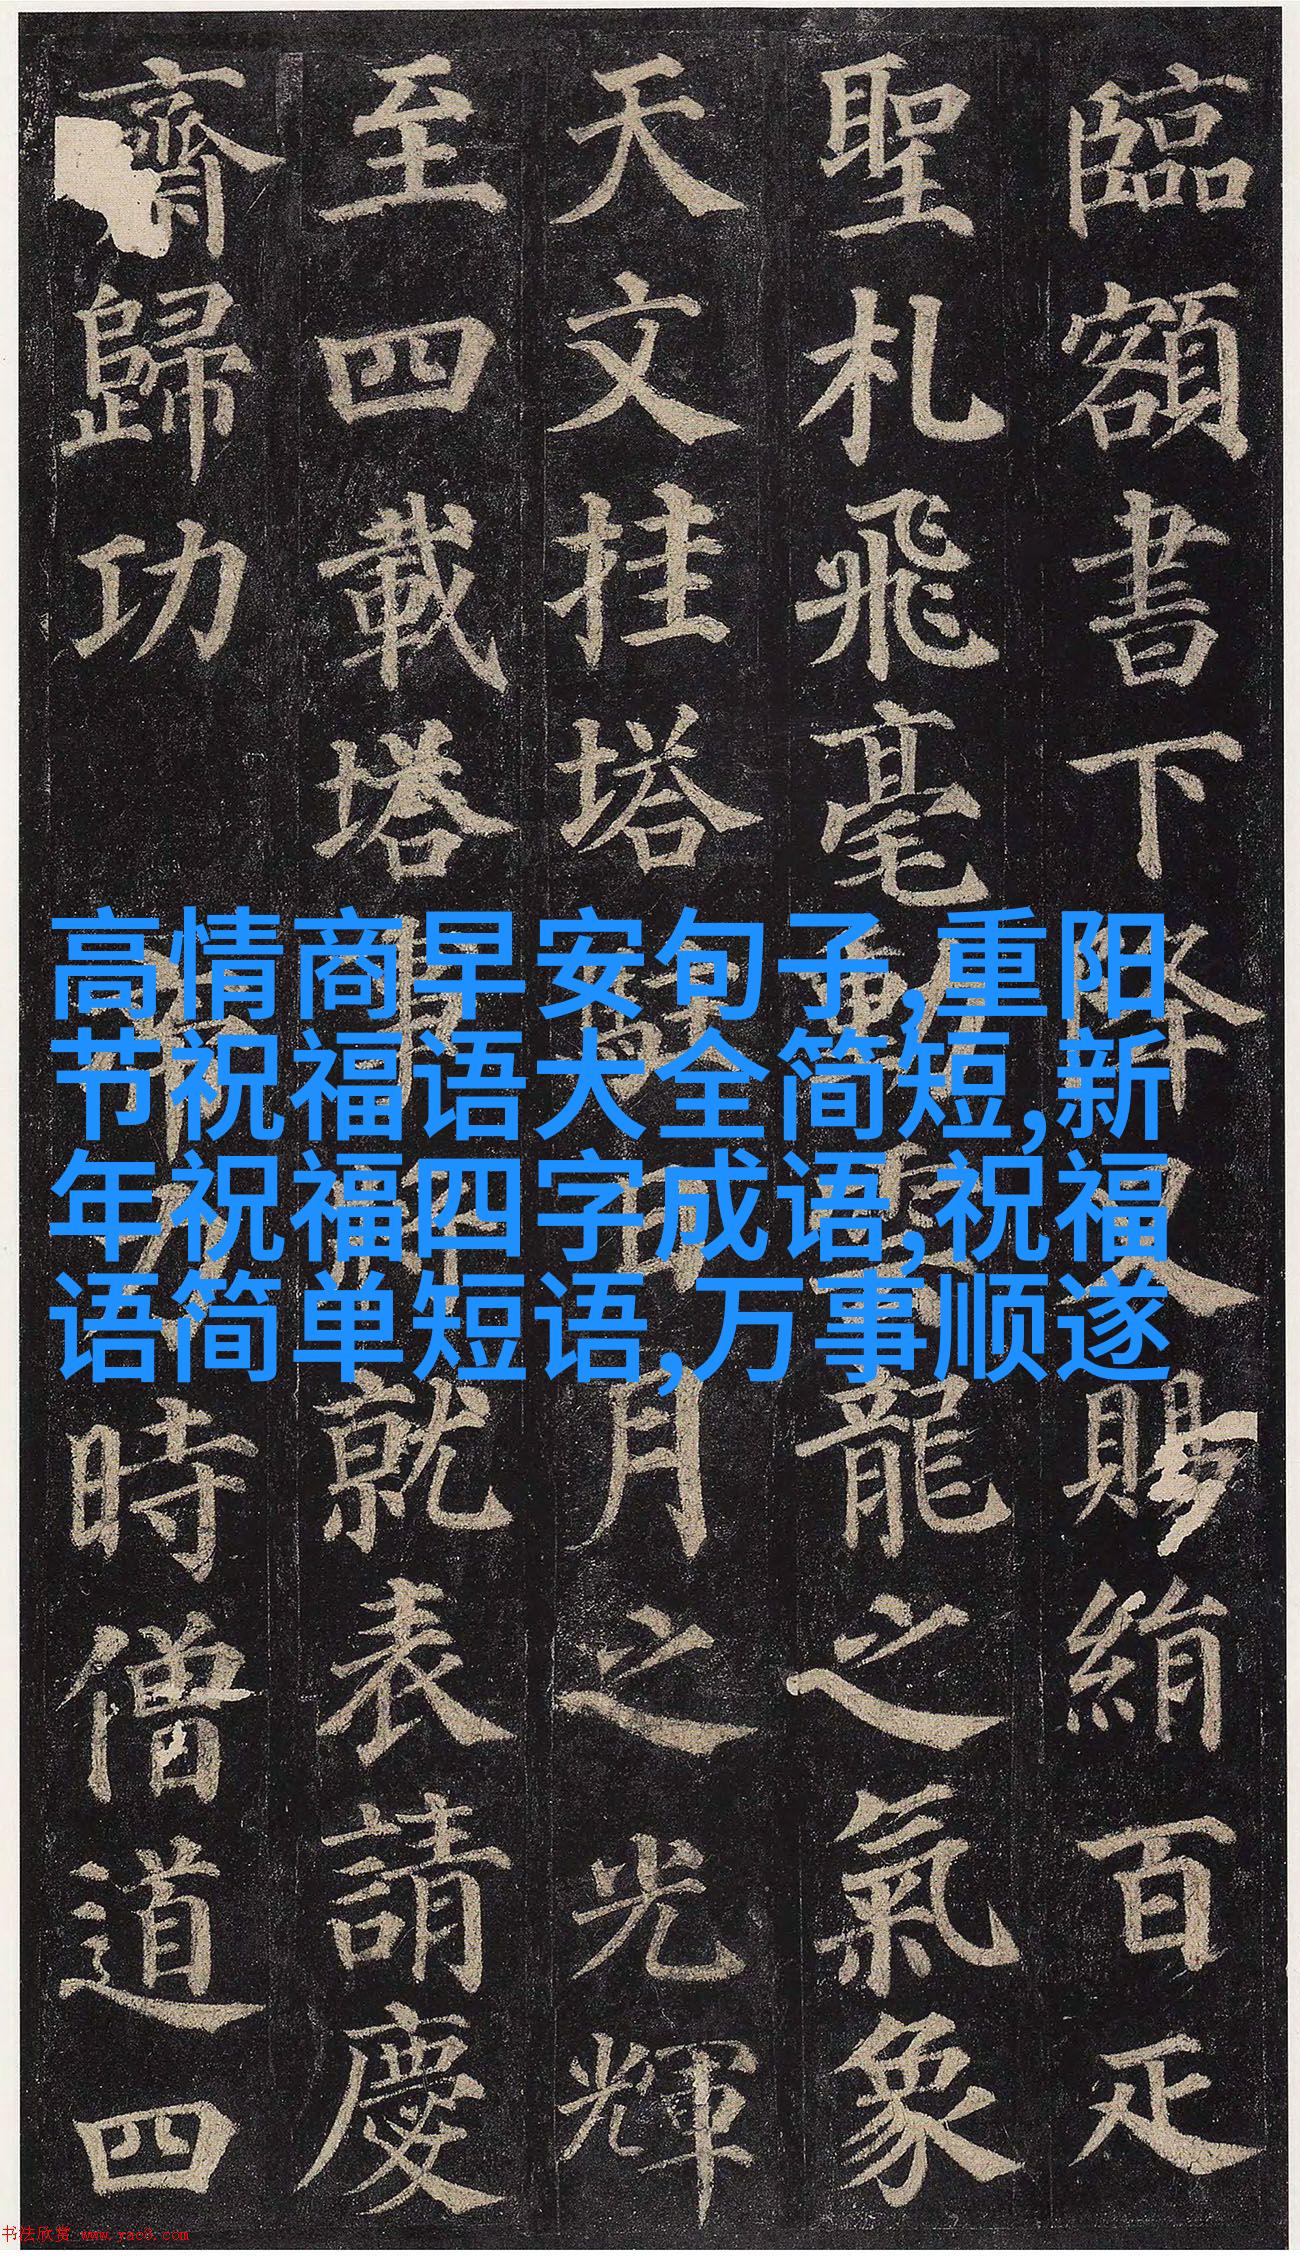 臨額書下降又賜絹百疋
聖札飛毫動雲龍之氣象
天文挂塔駐日月之光輝
至四載塔事將就表請慶
齋歸功帝力時僧道四
高情商早安句子,重阳
节祝福语大全简短,新
年祝福四字成语,祝福
语简单短语,万事顺遂
书法欣赏 www.yac8.com